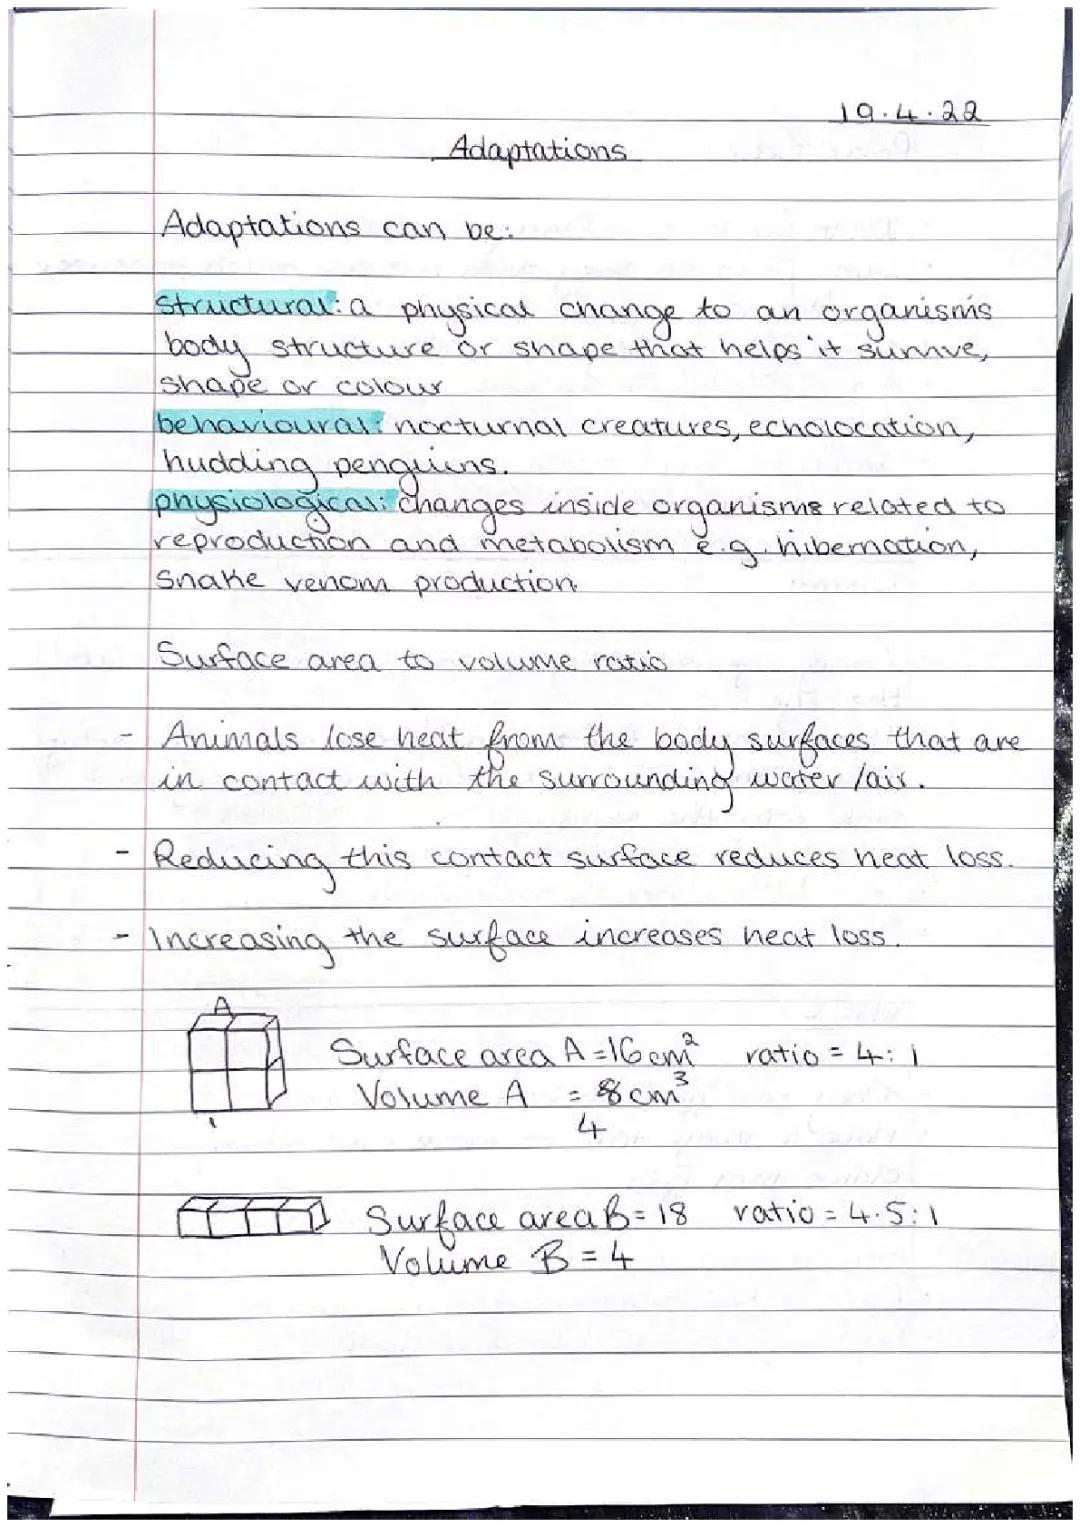 19.4.22
Adaptations
Adaptations can be:
structural: a physical change to an organisms
body structure or shape that helps it survive,
shape or colour
behavioural: nocturnal creatures, echolocation,
hudding penguins.
physiological: changes inside organisms related to
reproduction and metabolism e.g. hibernation,
snake venom production
Surface area to volume ratio
- Animals lose heat from the body surfaces that are
in contact with the surrounding water/air.
- Reducing this contact surface reduces heat loss.
- Increasing the surface increases heat loss.
A
Surface area A = 16cm² ratio = 4:1
Volume A = 8cm³
4
Surface area B = 18 ratio = 4.5:1
Volume B = 4